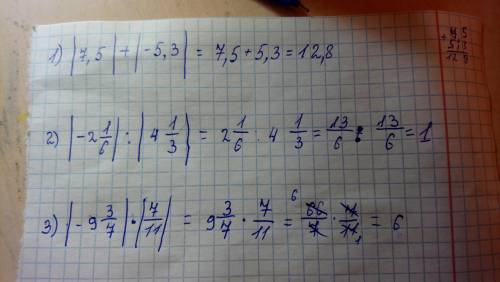 1) |7,5| + |-5,3| = 7,5 + 5,3 = 12,8
+ 7,5
5,3
12 8
2) |-2 1/6| : |4 1/3| = 2 1/6 : 4 1/3 = 13/6 : 13/6 = 1
3) |-9 3/7| · |7/11| = 9 3/7 · 7/11 = 6 66/7 · 7/11 1 = 6